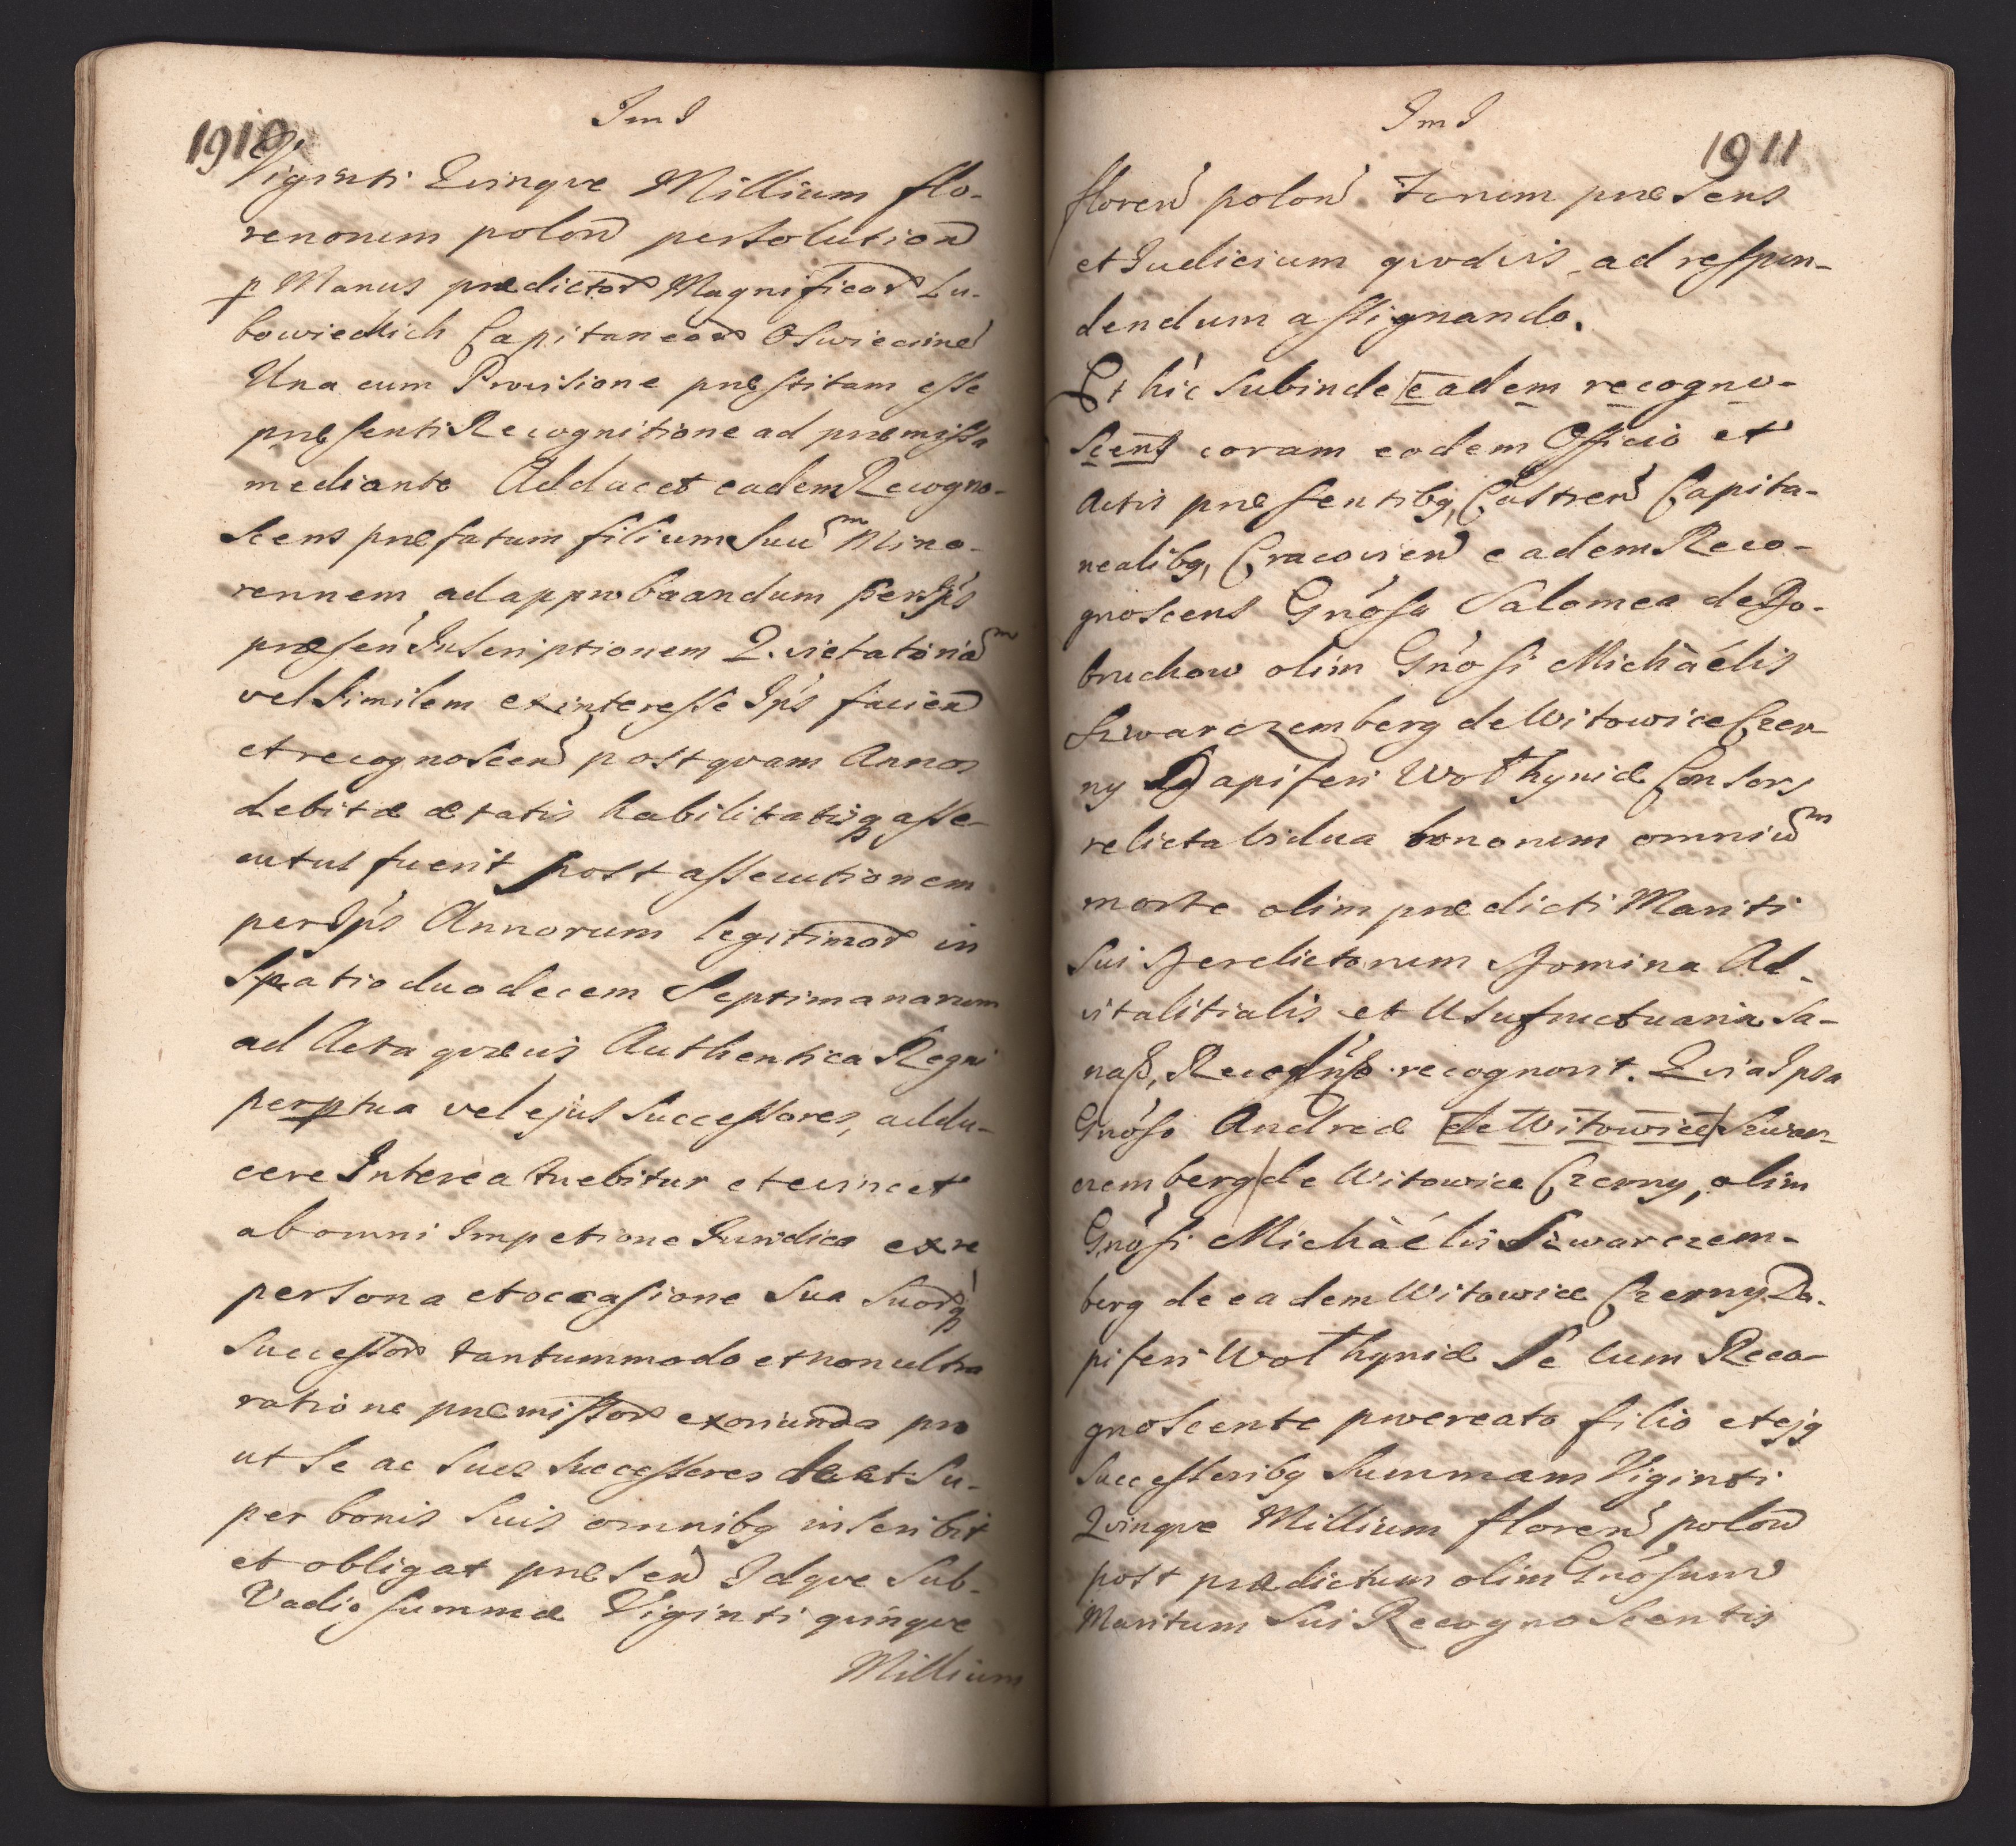 1910
Im I
Viginti Qvinqve Millium flo-
renorum polon̄ persolution̄
p Manus prædictor̄ Magnificor̄ Lu-
bowieckich Capitaneor̄ Oswiecimen̄
Una cum Provisione præstitam esse
præsenti Recognitione ad præmissa
mediante Adducet eadem Recogno-
scens præfatum filium suūm Mino-
rennem ad approbaandum per Ips
præsen Inscriptionem Qvietatoriām
vel similem ex interesse Ips facien̄
et recognoscen̄ postqvam Annos
debitæ ætatis habilitatisq asse-
cutus fuerit post assecutionem
per Ips Annorum legitimor̄ in
Spatio duodecem Septimanarum
ad Acta qvævis Authentica Regni
perptua vel ejus Successores, addu-
cere Interea tuebitur et evincet
ab omni Impetione Iuridica ex re
persona et occasione sua suorq
Successor̄ tantummodo et non ultra
ratione præmissor̄ exoriunda pro
ut se ac suos successores debet su-
per bonis suis omnibq inscribit
et obligat præsen̄ Idqve sub-
Vadio summæ Viginti qvinqve
Millium
Im I
1911
floren̄ polon̄. Forum præsens
et Iudicium qvodvis ad respon-
dendum assignando.
Et hic subinde eadem recogno-
scens coram eodem Officio et
Actis præsentibq, Castren̄ Capita-
nealibq, Cracovien̄ eadem Reco-
gnoscens Gnosa Salomea de Bo-
bruchow olim Gnosi Michàélis
Szwarczemberg de Witowice Czer-
ny Dapiferi Wołhyniæ Consors
relicta Vidua bonorum omniūm
morte olim prædicti Mariti
sui Derelictorum Domina Ad-
vitalitialis et Usufructuaria sa-
naß, Recogńß recognovit. Qvia Ipsa
Gnoso Andreæ de Witowice Szwar-
czemberg de Witowice Czerny, olim
Gnosi Michàélis Szwarczem-
berg de eadem Witowice Czerny Da-
piferi Wołhyniæ Se cum Reco-
gnoscente procreato filio et ejq
Successoribq Summam Viginti
Qvinqve Millium floren̄ polon̄
post prædictum olim Gnosum
Maritum sui Recognoscentis